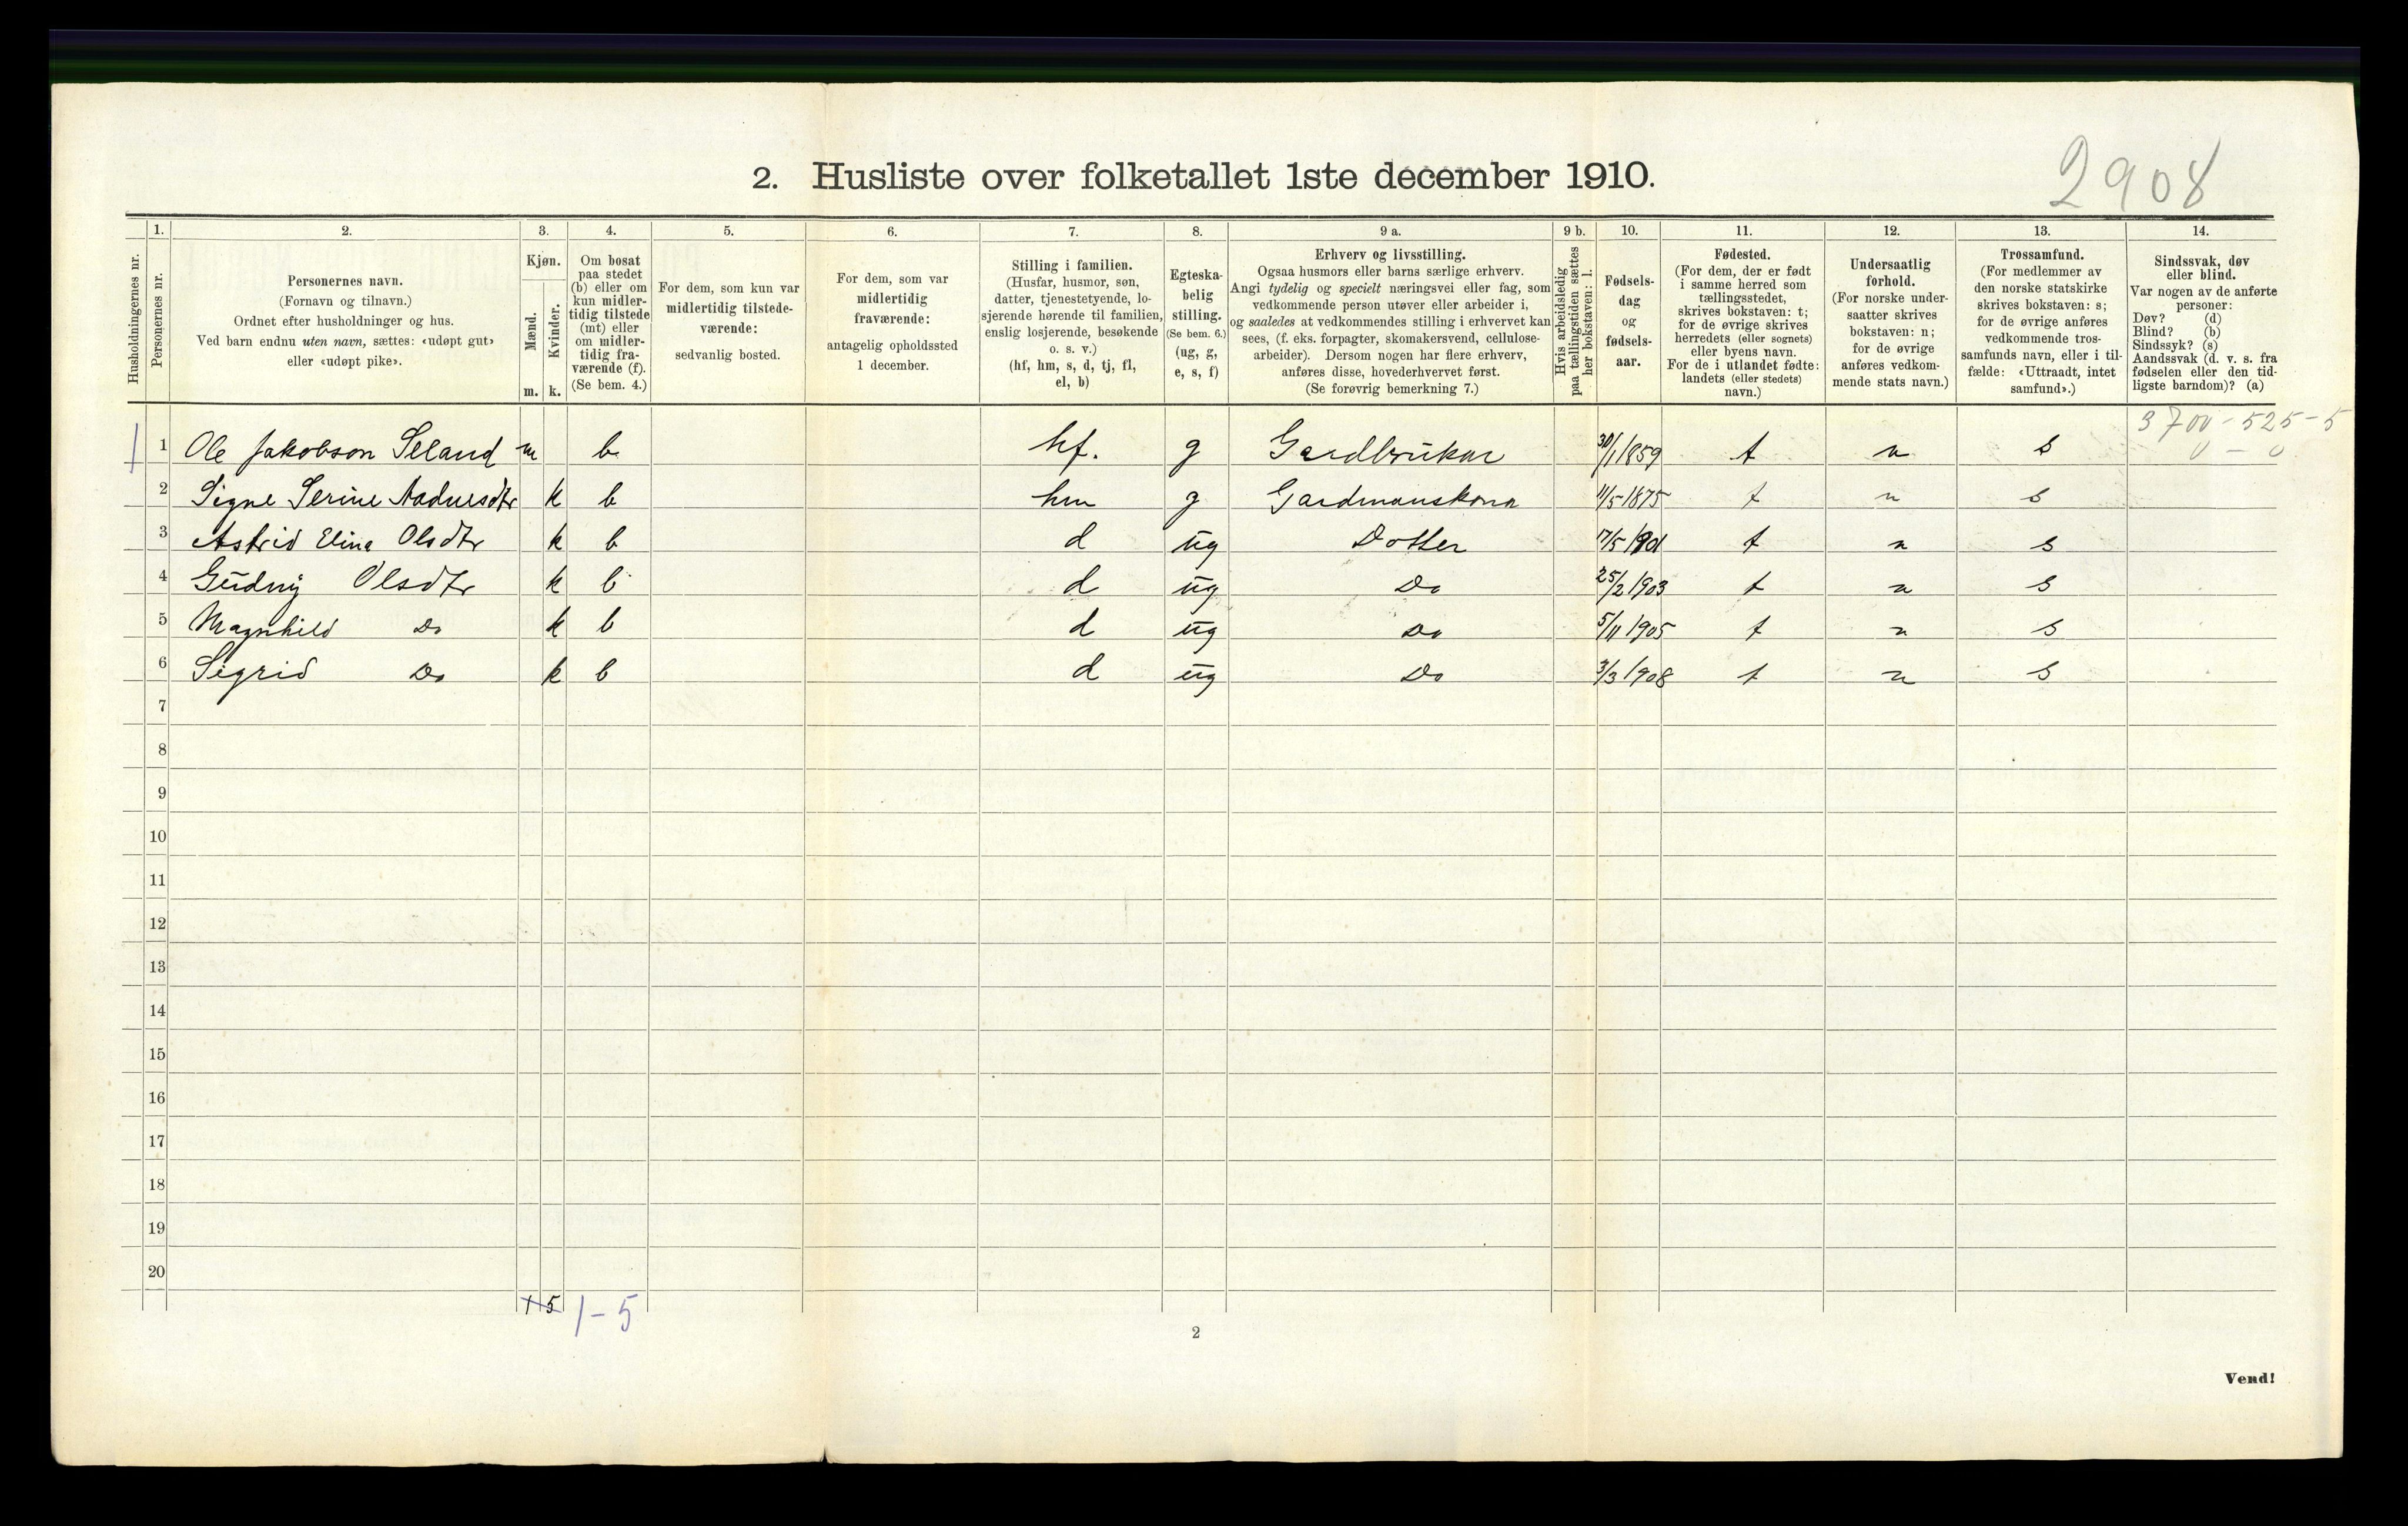 2908
2. Husliste over folketallet 1ste december 1910.
Husholdningernes nr.
1. Personernes nr.
2. Personernes navn. (Fornavn og tilnavn.) Ordnet efter husholdninger og hus. Ved barn endnu uten navn, sættes: «udøpt gut» eller «udøpt pike».
3. Kjøn. Mænd. m. Kvinder. k.
4. Om bosat paa stedet (b) eller om kun midlertidig tilstede (mt) eller om midlertidig fraværende (f). (Se bem. 4.)
5. For dem, som kun var midlertidig tilstedeværende: sedvanlig bosted.
6. For dem, som var midlertidig fraværende: antagelig opholdssted 1 december.
7. Stilling i familien. (Husfar, husmor, søn, datter, tjenestetyende, losjerende hørende til familien, enslig losjerende, besøkende o. s. v.) (hf, hm, s, d, tj, fl, el, b)
8. Egteskabelig stilling. (Se bem. 6.) (ug, g, e, s, f)
9 a. Erhverv og livsstilling. Ogsaa husmors eller barns særlige erhverv. Angi tydelig og specielt næringsvei eller fag, som vedkommende person utøver eller arbeider i, og saaledes at vedkommendes stilling i erhvervet kan sees, (f. eks. forpagter, skomakersvend, cellulosearbeider). Dersom nogen har flere erhverv, anføres disse, hovederhvervet først. (Se forøvrig bemerkning 7.)
9 b. Hvis arbeidsledig paa tællingstiden sættes her bokstaven: l.
10. Fødselsdag og fødselsaar.
11. Fødested. (For dem, der er født i samme herred som tællingsstedet, skrives bokstaven: t; for de øvrige skrives herredets (eller sognets) eller byens navn. For de i utlandet fødte: landets (eller stedets) navn.)
12. Undersaatlig forhold. (For norske undersaatter skrives bokstaven: n; for de øvrige anføres vedkommende stats navn.)
13. Trossamfund. (For medlemmer av den norske statskirke skrives bokstaven: s; for de øvrige anføres vedkommende trossamfunds navn, eller i tilfælde: «Uttraadt, intet samfund».)
14. Sindssvak, døv eller blind. Var nogen av de anførte personer: Døv? (d) Blind? (b) Sindssyk? (s) Aandssvak (d. v. s. fra fødselen eller den tidligste barndom)? (a)
3700-525-5
0 - 0
1 1 Ole Jakobson Seland m b hf. g Gardbrukar 30/1 1859 t n s
2 Signe Serine Aadnesdtr k b hm g Gardmanskona 11/5 1875 t n s
3 Astrid Elina Olsdtr k b d ug Dotter 17/5 1901 t n s
4 Gudny Olsdtr k b d ug Do 25/2 1903 t n s
5 Magnhild Do k b d ug Do 5/11 1905 t n s
6 Sigrid Do k b d ug Do 3/3 1908 t n s
7
8
9
10
11
12
13
14
15
16
17
18
19
20
1 5 1-5
2
Vend!